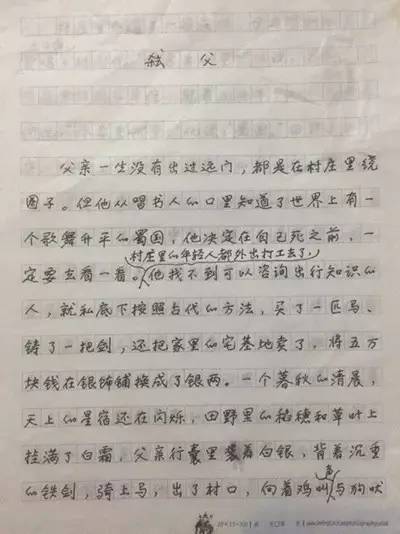 弑父
父亲一生没有出过远门，都是在村庄里绕
圈子。但他从唱书人的口里知道了世界上有一
个歌舞升平的蜀国，他决定在自己死之前，一
村庄里的年轻人都外出打工去了，
定要去看一看。他找不到可以咨询出行知识的
人，就私底下按照古代的方法，买了一匹马、
铸了一把剑，还把家里的宅基地卖了，将五万
块钱在银饰铺换成了银两。一个暮秋的清晨，
天上的星宿还在闪烁，田野里的稻穗和草叶上
挂满了白霜，父亲行囊里装着白银，背着沉重
声
的铁剑，骑上马，出了村口，向着鸡叫与狗吠